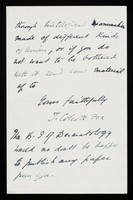 through
made of different kinds
of , or if you do
not want to be bothered
with it send some material
of to
Yours faithfully
The B. J. of Dermatology
would no doubt be happy
to publish any paper
from you.